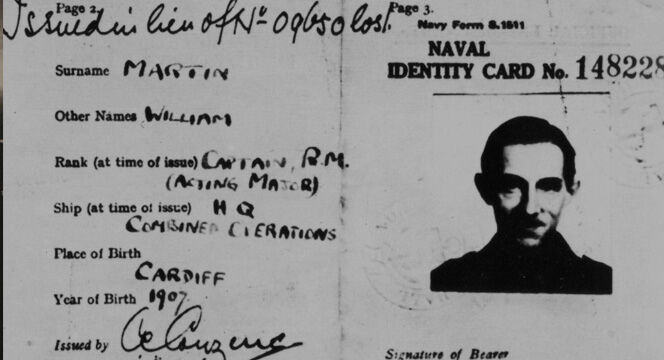 Page 2.
Issued in lieu of No 09650 lost.
Surname MARTIN
Other Names WILLIAM
Rank (at time of issue) CAPTAIN, R.M.
(ACTING MAJOR)
Ship (at time of issue) H Q
COMBINED OPERATIONS
Place of Birth
CARDIFF
Year of Birth 1907
Issued by
Page 3.
Navy Form S.1511
NAVAL
IDENTITY CARD No. 148228
Signature of Bearer